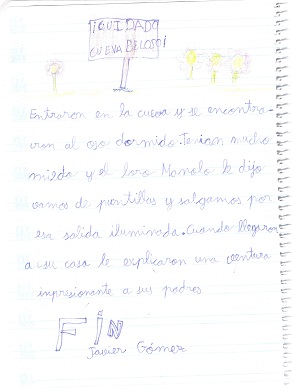 ¡CUIDADO
CUEVA DEL OSO!
Entraron en la cueva y se encontra-
ron al oso dormido. Tenian mucho
miedo y el loro Manolo le dijo
vamos de puntillas y salgamos por
esa salida iluminada. Cuando llegaron
a su casa le explicaron una
impresionante a sus padres
FÍN
Javier Gómez